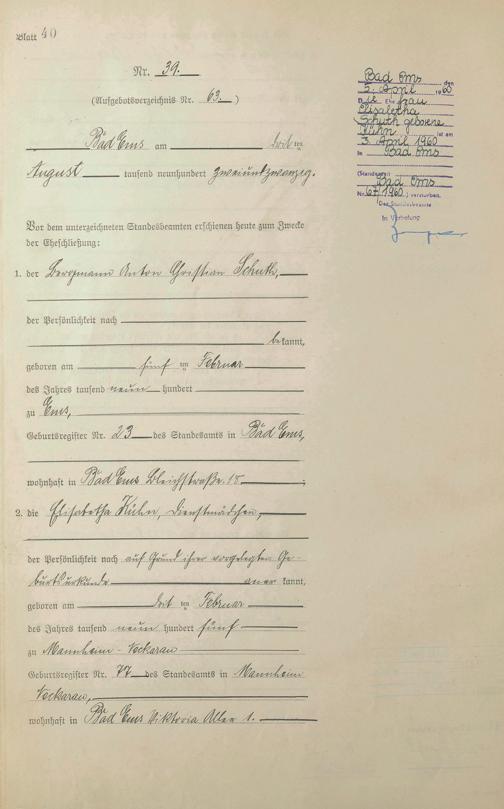 Blatt 40
Nr. 39.
(Aufgebotsverzeichnis Nr. 63.)
Bad Ems am dritten
August tausend neunhundert zweiundzwanzig.
Vor dem unterzeichneten Standesbeamten erschienen heute zum Zwecke
der Eheschließung:
1. der Bergmann Anton Christian Schuth,
der Persönlichkeit nach
bekannt,
geboren am fünften Februar
des Jahres tausend neun hundert
zu Ems,
Geburtsregister Nr. 23 des Standesamts in Bad Ems,
wohnhaft in Bad Ems Bleichstraße 18
2. die Elisabetha Kühn, Dienstmädchen,
der Persönlichkeit nach auf Grund ihrer vorgelegten Ge-
burtsurkunde anerkannt,
geboren am dritten Februar
des Jahres tausend neun hundert fünf
zu Mannheim-Neckarau
Geburtsregister Nr. 77 des Standesamts in Mannheim
Neckarau,
wohnhaft in Bad Ems Viktoria Allee 1.
Bad Ems, den
5. April 1960
Die Ehefrau
Elisabetha
Schuth geborene
Kühn ist am
3. April 1960
in Bad Ems
(Standesamt
Bad Ems
Nr. 67/1960) verstorben.
Der Standesbeamte
In Vertretung